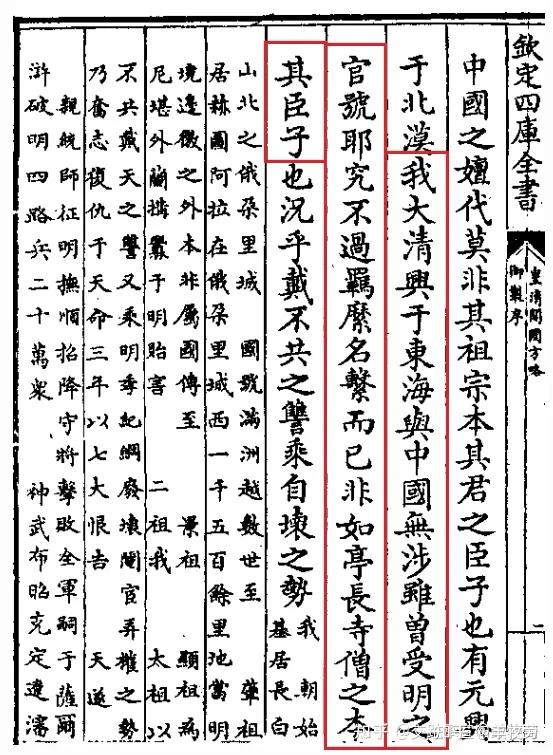 欽定四庫全書
皇清開國方略
御製序
二
中國之嬗代莫非其祖宗本其君之臣子也有元興
于北漠我大清興于東海與中國無涉雖曾受明之
官號耶究不過羈縻名繫而已非如亭長寺僧之本
其臣子也況乎戴不共之讐乘自壞之勢
我 朝始
基居長白
山北之俄朶里城 國號滿洲越數世至 肇祖
居赫圖阿拉在俄朶里城西一千五百餘里地當明
境邊徼之外本非屬國傳至 景祖 顯祖為
尼堪外蘭搆釁于明貽害 二祖我 太祖以
不共戴天之讐又乘明季紀綱廢壞閹官弄權之勢
乃奮志復仇于天命三年以七大恨告 天遂
親統師征明撫順招降守將擊敗全軍嗣于薩爾
滸破明四路兵二十萬衆 神武布昭克定遼瀋
知乎